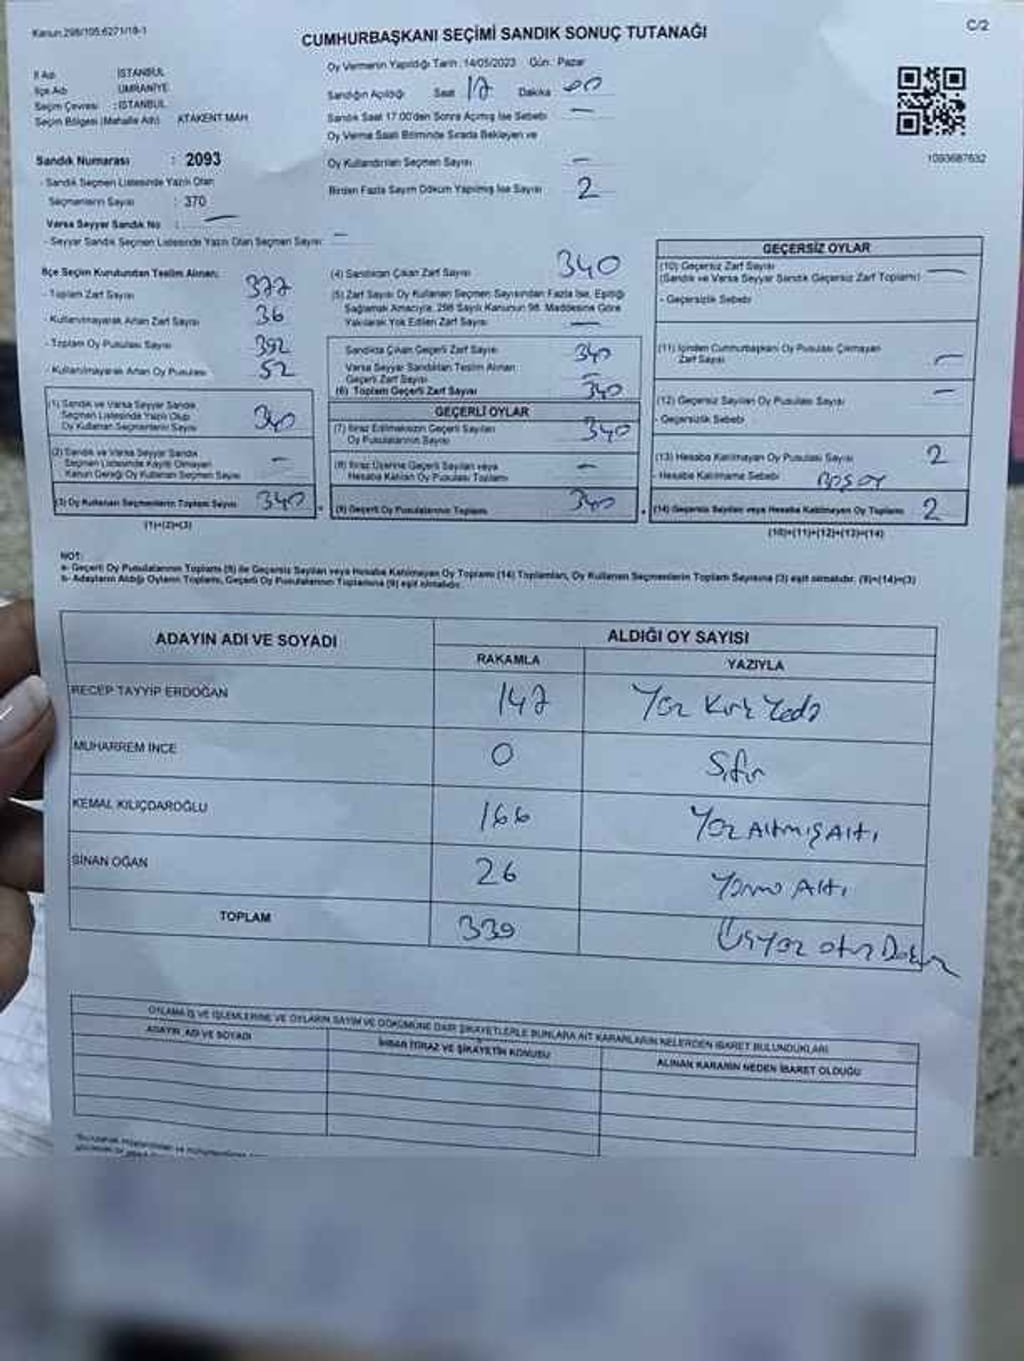 Kanun:298/105,6271/18-1
C/2
CUMHURBAŞKANI SEÇİMİ SANDIK SONUÇ TUTANAĞI
İl Adı : İSTANBUL
İlçe Adı : ÜMRANİYE
Seçim Çevresi : İSTANBUL
Seçim Bölgesi (Mahalle Adı) ATAKENT MAH.
Sandık Numarası : 2093
- Sandık Seçmen Listesinde Yazılı Olan
Seçmenlerin Sayısı : 370
Varsa Seyyar Sandık No : —
- Seyyar Sandık Seçmen Listesinde Yazılı Olan Seçmen Sayısı —
Oy Vermenin Yapıldığı Tarih :14/05/2023 Gün: Pazar
Sandığın Açıldığı Saat 17 Dakika 00
Sandık Saat 17.00'den Sonra Açılmış İse Sebebi —
Oy Verme Saati Bitiminde Sırada Bekleyen ve
Oy Kullandırılan Seçmen Sayısı —
Birden Fazla Sayım Döküm Yapılmış İse Sayısı 2
1093687632
İlçe Seçim Kurulundan Teslim Alınan:
- Toplam Zarf Sayısı 377
- Kullanılmayarak Artan Zarf Sayısı 36
- Toplam Oy Pusulası Sayısı 392
- Kullanılmayarak Artan Oy Pusulası 52
(1) Sandık ve Varsa Seyyar Sandık
Seçmen Listesinde Yazılı Olup
Oy Kullanan Seçmenlerin Sayısı 340
(2) Sandık ve Varsa Seyyar Sandık
Seçmen Listesinde Kayıtlı Olmayan
Kanun Gereği Oy Kullanan Seçmen Sayısı —
(3) Oy Kullanan Seçmenlerin Toplam Sayısı 340
(1)+(2)=(3)
(4) Sandıktan Çıkan Zarf Sayısı 340
(5) Zarf Sayısı Oy Kullanan Seçmen Sayısından Fazla İse, Eşitliği
Sağlamak Amacıyla, 298 Sayılı Kanunun 98. Maddesine Göre
Yakılarak Yok Edilen Zarf Sayısı —
Sandıkta Çıkan Geçerli Zarf Sayısı 340
Varsa Seyyar Sandıktan Teslim Alınan
Geçerli Zarf Sayısı —
(6) Toplam Geçerli Zarf Sayısı 340
GEÇERLİ OYLAR
(7) İtiraz Edilmeksizin Geçerli Sayılan
Oy Pusulalarının Sayısı 340
(8) İtiraz Üzerine Geçerli Sayılan veya
Hesaba Katılan Oy Pusulası Toplamı —
(9) Geçerli Oy Pusulalarının Toplamı 340
GEÇERSİZ OYLAR
(10) Geçersiz Zarf Sayısı —
(Sandık ve Varsa Seyyar Sandık Geçersiz Zarf Toplamı)
- Geçersizlik Sebebi
(11) İçinden Cumhurbaşkanı Oy Pusulası Çıkmayan
Zarf Sayısı —
(12) Geçersiz Sayılan Oy Pusulası Sayısı —
- Geçersizlik Sebebi
(13) Hesaba Katılmayan Oy Pusulası Sayısı 2
- Hesaba Katılmama Sebebi BOŞ OY
(14) Geçersiz Sayılan veya Hesaba Katılmayan Oy Toplamı 2
(10)+(11)+(12)+(13)=(14)
NOT:
a- Geçerli Oy Pusulalarının Toplamı (9) ile Geçersiz Sayılan veya Hesaba Katılmayan Oy Toplamı (14) Toplamları, Oy Kullanan Seçmenlerin Toplam Sayısına (3) eşit olmalıdır. (9)+(14)=(3)
b- Adayların Aldığı Oyların Toplamı, Geçerli Oy Pusulalarının Toplamına (9) eşit olmalıdır.
ADAYIN ADI VE SOYADI
ALDIĞI OY SAYISI
RAKAMLA YAZIYLA
RECEP TAYYİP ERDOĞAN 147 Yüz Kırk Yedi
MUHARREM İNCE 0 Sıfır
KEMAL KILIÇDAROĞLU 166 Yüz Altmış Altı
SİNAN OĞAN 26 Yirmi Altı
TOPLAM 339 Üçyüz otuz Dokuz
OYLAMA İŞ VE İŞLEMLERİNE VE OYLARIN SAYIM VE DÖKÜMÜNE DAİR ŞİKAYETLERLE BUNLARA AİT KARARLARIN NELERDEN İBARET BULUNDUKLARI
ADAYIN ADI VE SOYADI
İHBAR İTİRAZ VE ŞİKAYETİN KONUSU
ALINAN KARARIN NEDEN İBARET OLDUĞU